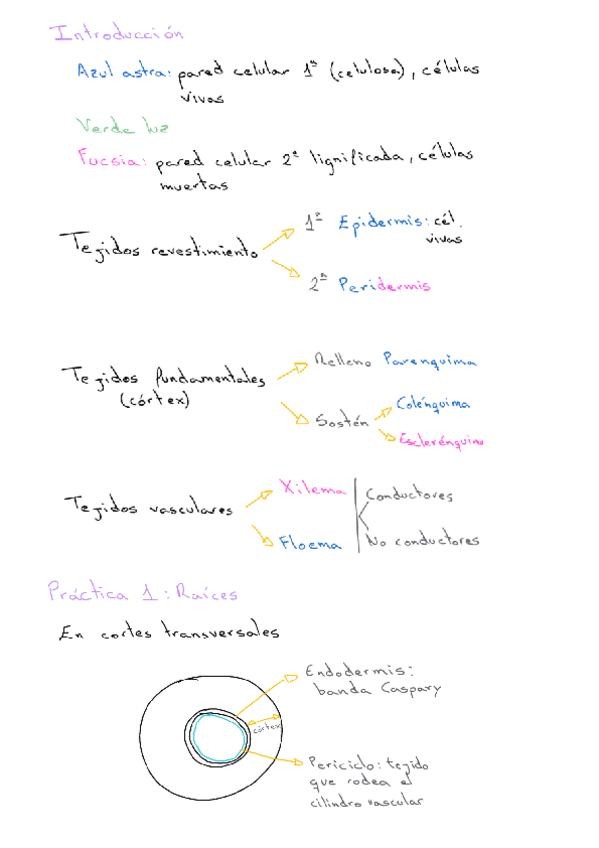 Introducción
Azul astra: pared celular 1ª (celulosa), células
vivas
Verde luz
Fucsia: pared celular 2ª lignificada, células
muertas
Tejidos revestimiento
1ª Epidermis: cél.
vivas
2ª Peridermis
Tejidos fundamentales
(córtex)
Relleno Parénquima
Sostén
Colénquima
Esclerénquima
Tejidos vasculares
Xilema
Floema
Conductores
No conductores
Práctica 1: Raíces
En cortes transversales
Endodermis:
banda Caspary
córtex
Periciclo: tejido
que rodea el
cilindro vascular